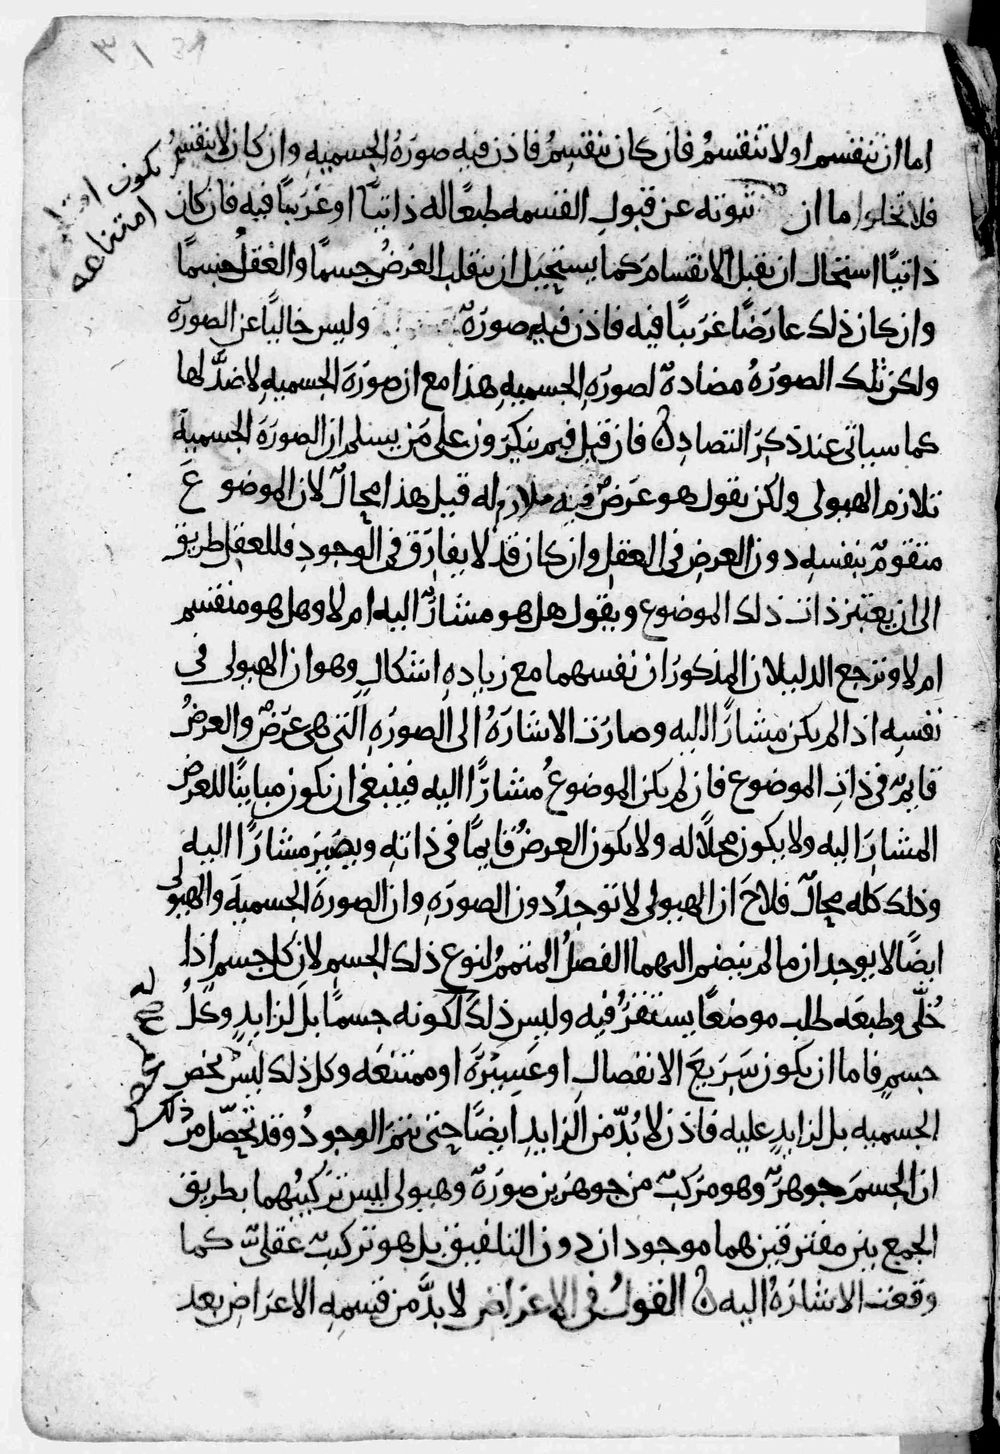 ٣١
اما ان تنقسم او لا تنقسم فان كان تنقسم فاذن فيه صورة الجسمية وان كان لا ينقسم
فلا تخلوا اما ان نبوته عن قبول القسمه طبعًا له ذاتيًا او غريبًا فيه فان كان
يكون
امتناعه
ذاتيًا استحال ان يقبل الانقسام كما يستحيل ان ينقلب العرض جسمًا والعقل جسمًا
وان كان ذلك عارضًا غريبًا فيه فاذن فيه صورة وليس خاليًا عن الصورة
ولكن تلك الصورة مضادة لصورة الجسمية هذا مع ان صورة الجسمية لا ضدّ لها
كما سياتي عند ذكر التضاد ن فان قيل فبم ينكرون على من يسلم ان الصورة الجسمية
تلازم الهيولى ولكن يقول هو عرض فيه ملازم له قيل هذا محال لان الموضوع
متقوم بنفسه دون العرض في العقل وان كان قد لا يفارق في الوجود فللعقل طريق
الى ان يعتبر ذات ذلك الموضوع ويقول هل هو مشار اليه ام لا وهل هو منقسم
ام لا ونرجع الدليلان المذكوران نفسهما مع زيادة اشكال وهو ان الهيولى في
نفسه اذا لم يكن مشارًا اليه وصارت الاشارة الى الصورة التي هي عرض والعرض
قايم في ذات الموضوع فان لم يكن الموضوع مشارًا اليه فينبغي ان تكون مباينًا للعرض
المشار اليه ولا يكون محلًا له ولا يكون العرض قايمًا في ذاته ويصير مشارًا اليه
وذلك كله محال فلاح ان الهيولى لا توجد دون الصورة وان الصورة الجسمية والهيولى
ايضًا لا يوجد ان ما لم ينضم اليهما الفصل المتمم لنوع ذلك الجسم لان كل جسم اذا
خُلّي وطبعه طلب موضعًا يستقر فيه وليس ذلك لكونه جسمًا بل لزايد وكل
جسم فاما ان يكون سريع الانفصال او عسيره او ممتنعه وكل ذلك ليس بمحض
الجسمية بل لزايد عليه فاذن لا بدّ من الزايد ايضًا حتى يتم الوجود وقد تحصّل من ذلك
ان الجسم جوهر وهو مركب من جوهرين صورة وهيولى ليس تركيبهما بطريق
الجمع بين مفترقين هما موجودان دون التلفيق بل هو تركيب عقلي كما
وقعت الاشارة اليه ن القول في الاعراض لا بدّ من قسمة الاعراض بعد